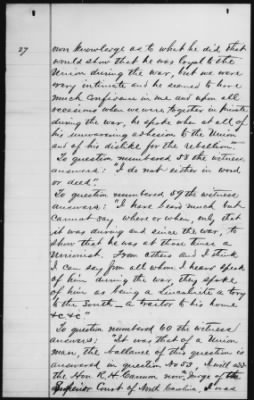 27
own knowledge as to what he did that
would show that he was loyal to the
Union during the war, but we were
very intimate and he seemed to have
much confidence in me and upon all
occasions when we were together in private
during the war, he spoke when at all of
his unwavering adhesion to the Union
and of his dislike for the rebellion."
To question numbered 58 the witness
answered: "I do not either in word
or deed."
To question numbered 59 the witness
answers: "I have said much but
cannot say where or when, only that
it was during and since the war, to
show that he was at those times a
Unionist. From others and I think
I can say from all whom I heard speak
of him during the war, they spoke
of him as being a Lincolnite a tory
to the South — a traitor to his home
&c &c"
To question numbered 60 the witness
answers: "It was that of a Union
man, the ballance of this question is
answered in question No 52, I will add
the Hon R. H. Cannon now Judge of the
Superior Court of North Carolina, I was